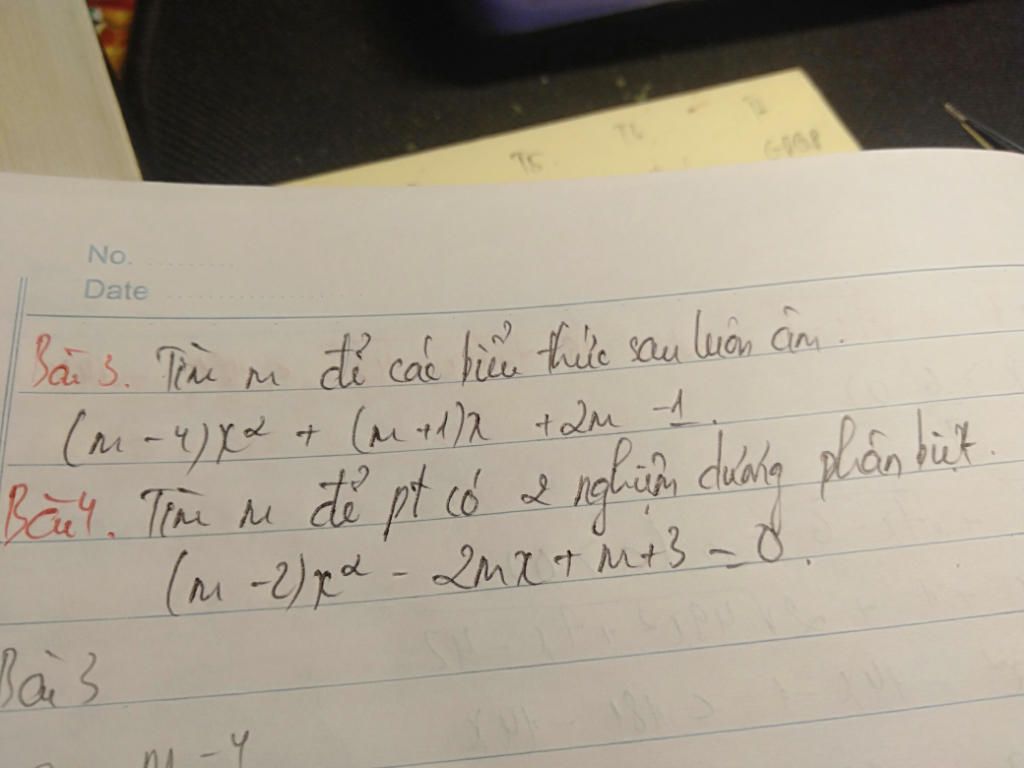 T6
T5
No.
Date
Bài 3. Tìm m để các biểu thức sau luôn âm.
(m - 4)x² + (m + 1)x + 2m - 1.
Bài 4. Tìm m để pt có 2 nghiệm dương phân biệt.
(m - 2)x² - 2mx + m + 3 = 0.
Bài 3
m - 4